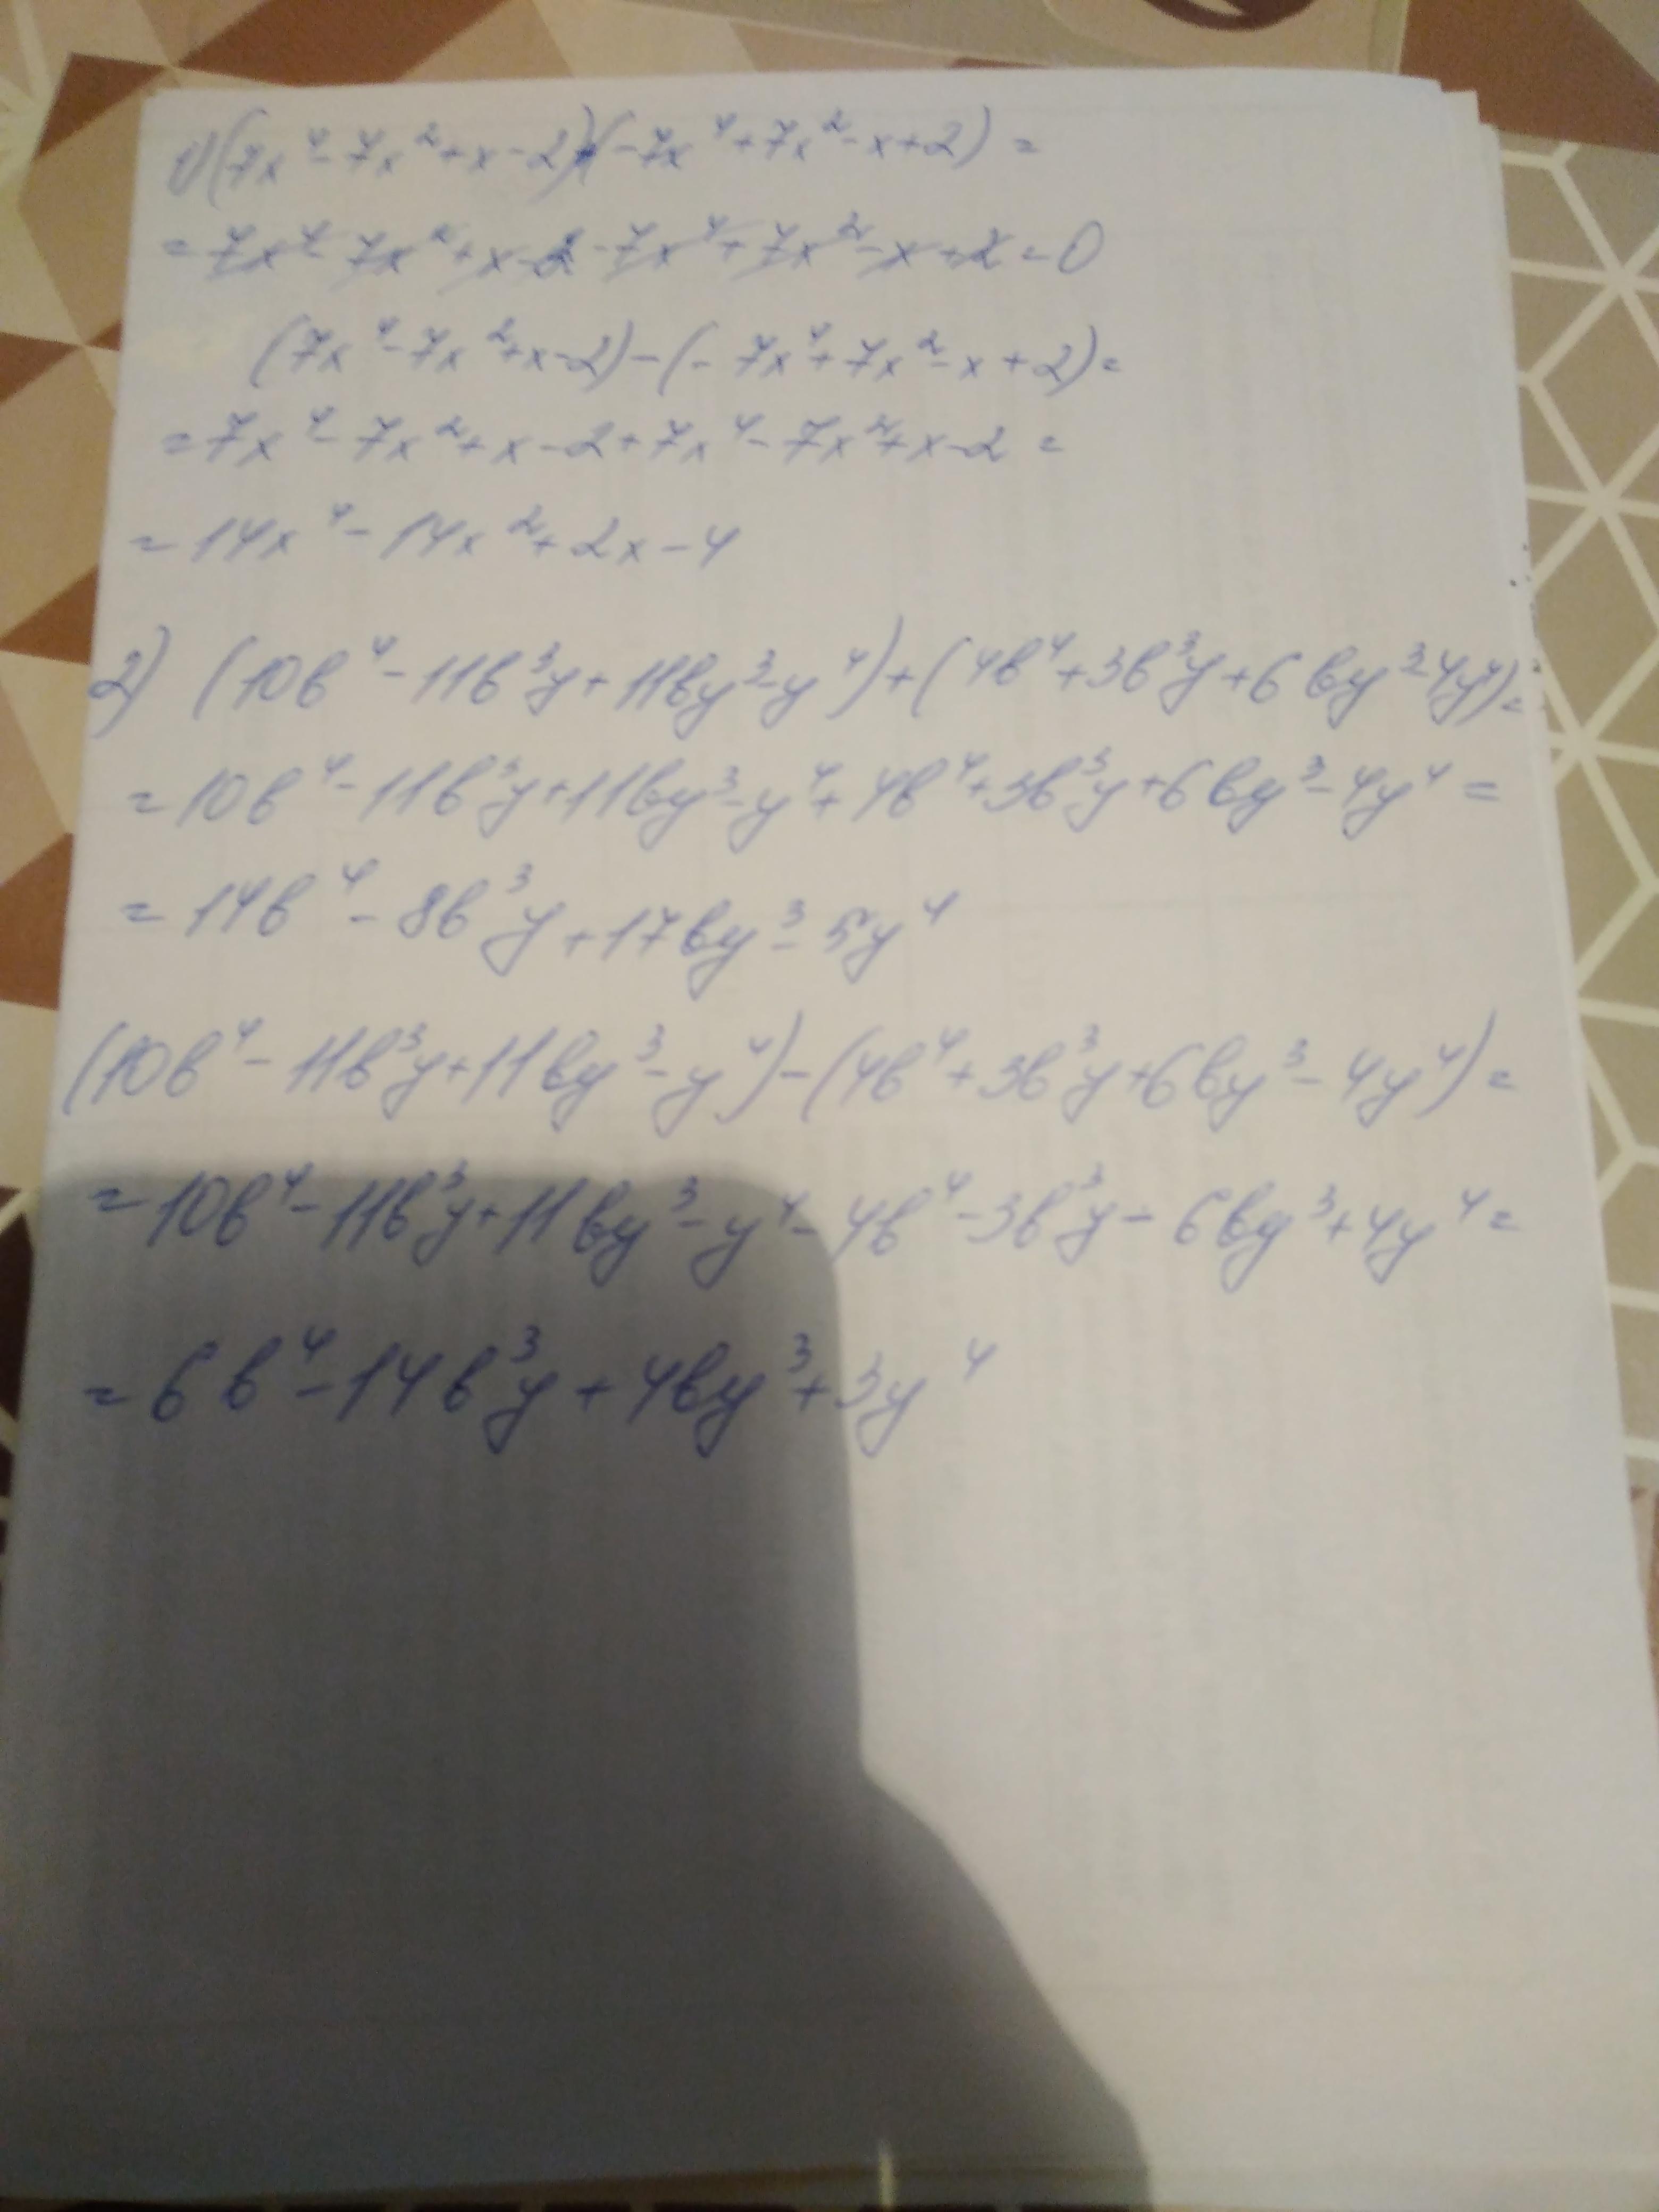 1) (7x⁴-7x²+x-2)+(-7x⁴+7x²-x+2)=
=7x⁴-7x²+x-2-7x⁴+7x²-x+2=0
(7x⁴-7x²+x-2)-(-7x⁴+7x²-x+2)=
=7x⁴-7x²+x-2+7x⁴-7x²+x-2=
=14x⁴-14x²+2x-4
2) (10b⁴-11b³y+11by³-y⁴)+(4b⁴+3b³y+6by³-4y⁴)=
=10b⁴-11b³y+11by³-y⁴+4b⁴+3b³y+6by³-4y⁴=
=14b⁴-8b³y+17by³-5y⁴
(10b⁴-11b³y+11by³-y⁴)-(4b⁴+3b³y+6by³-4y⁴)=
=10b⁴-11b³y+11by³-y⁴-4b⁴-3b³y-6by³+4y⁴=
=6b⁴-14b³y+4by³+3y⁴